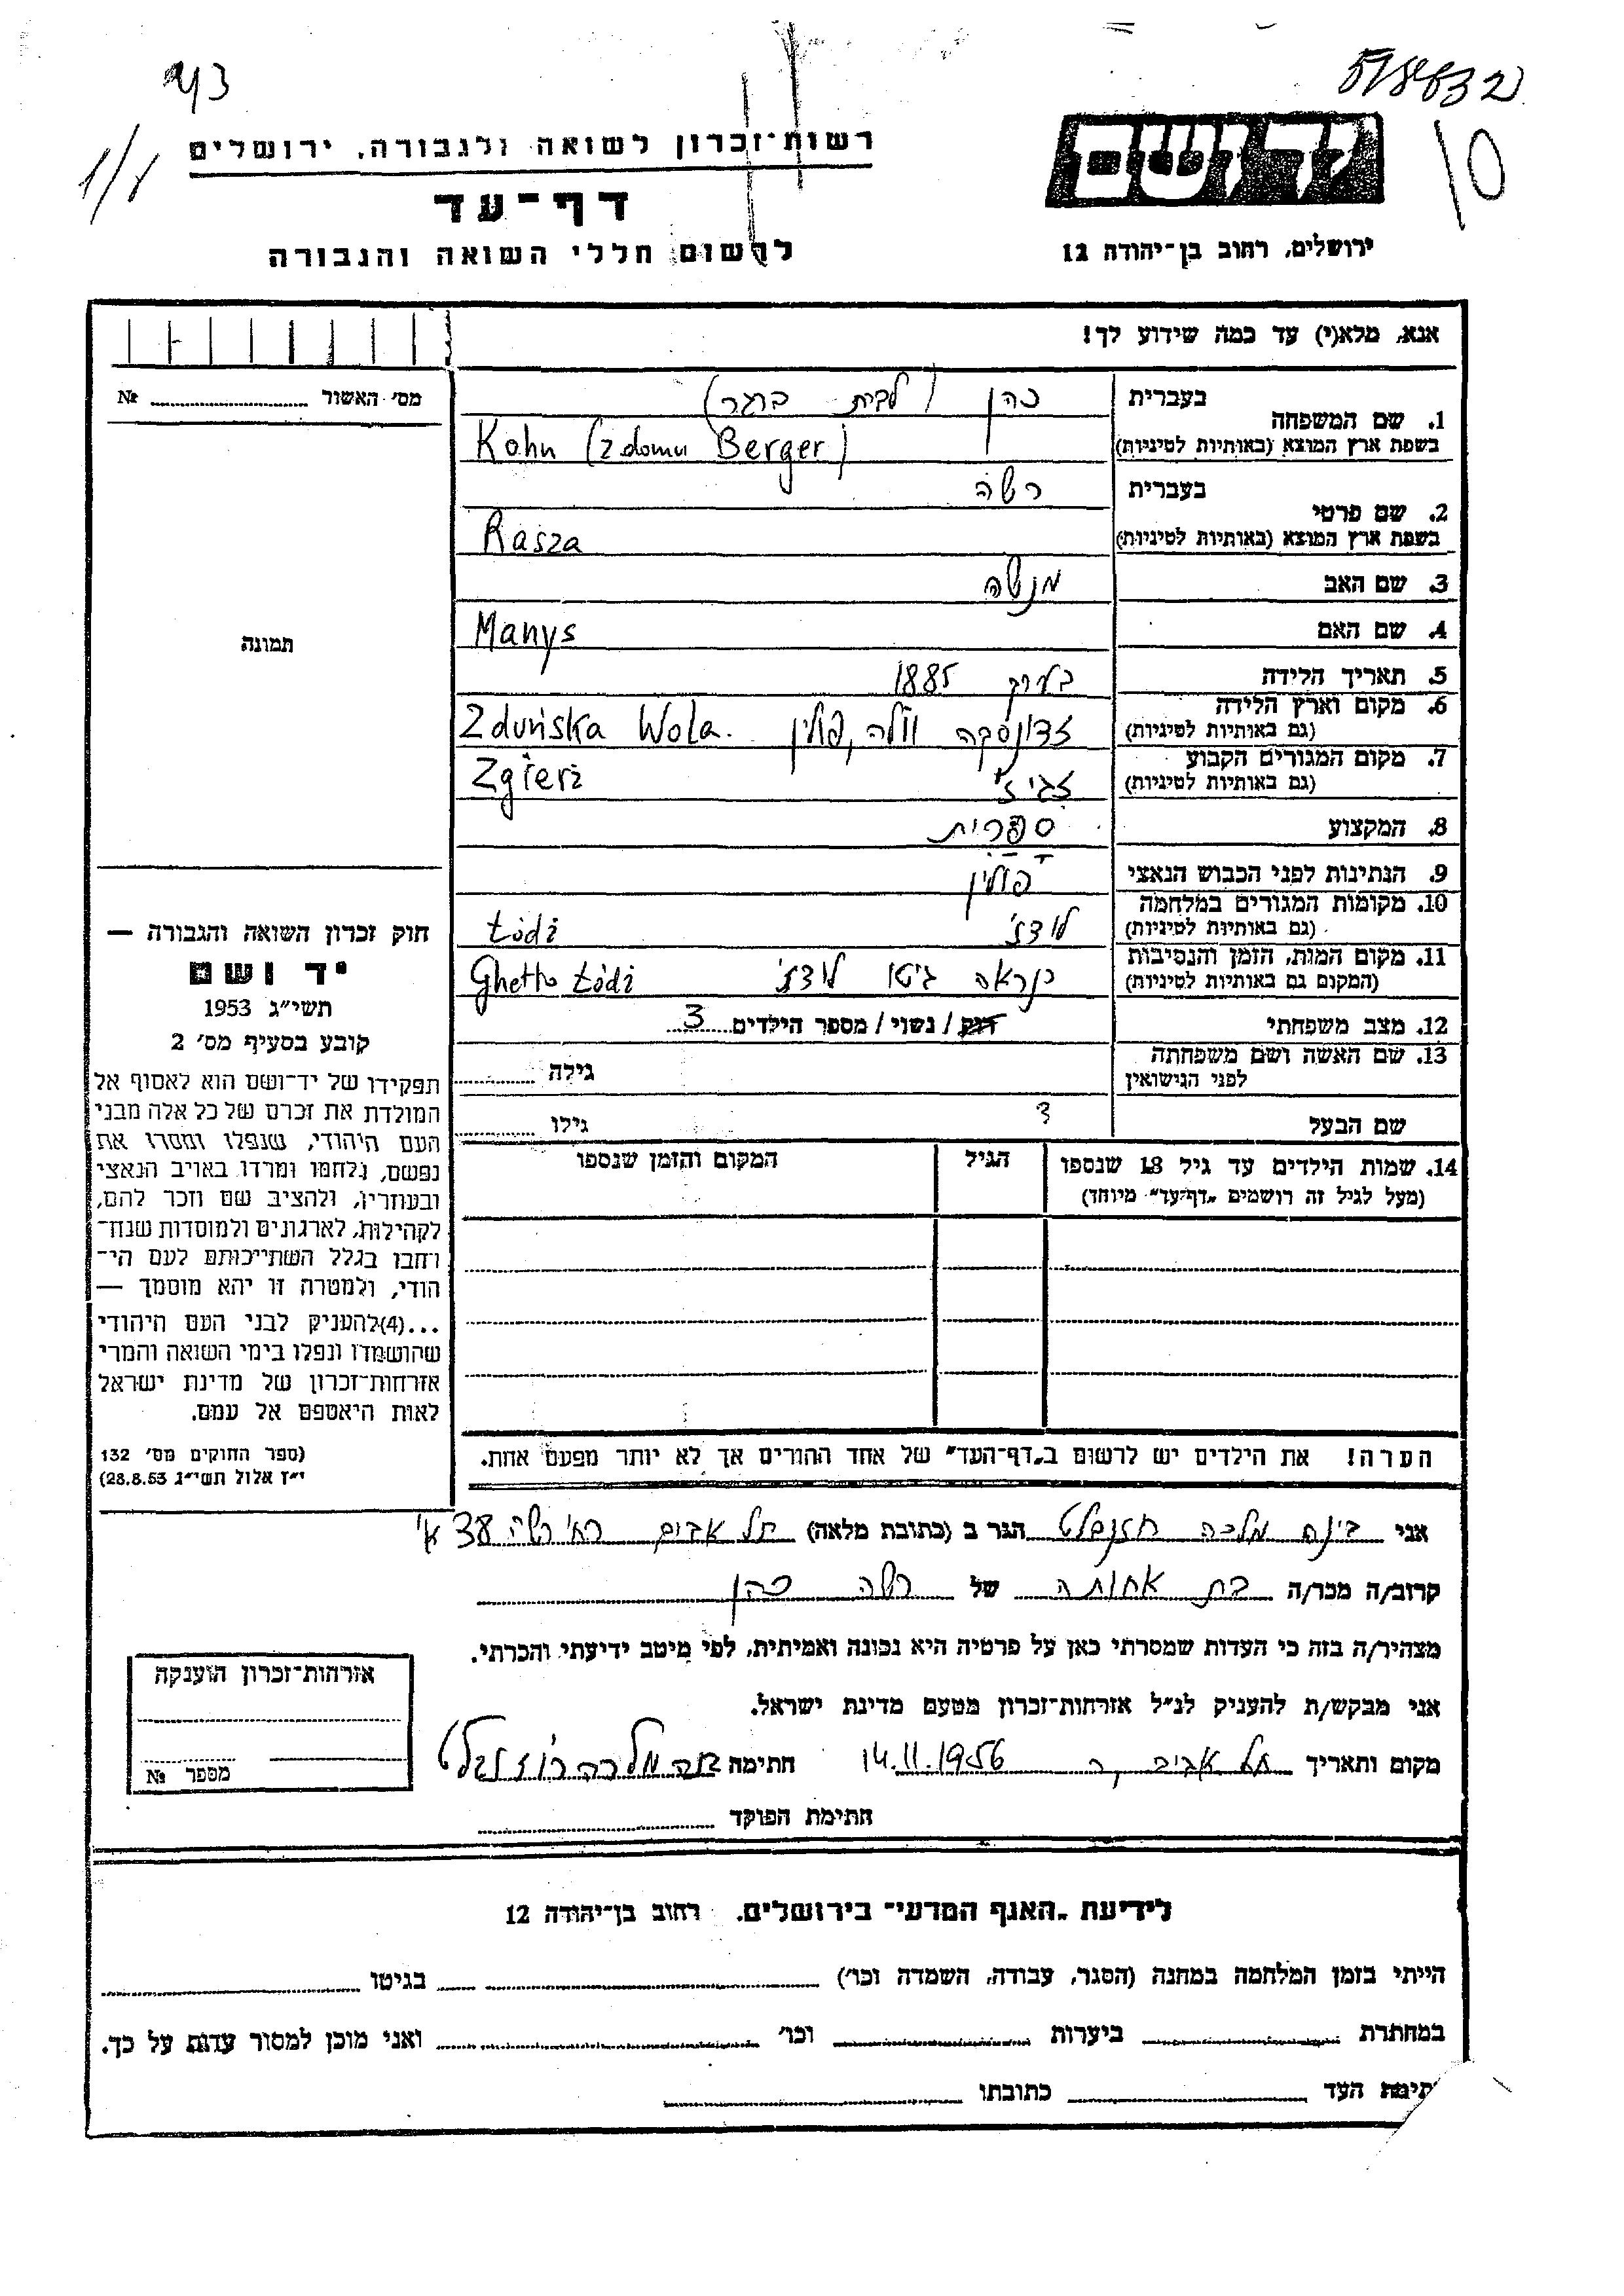 573832
43
10
1/8
יד ושם
רשות־זכרון לשואה ולגבורה, ירושלים
דף־עד
ירושלים, רחוב בן־יהודה 12
לרשום חללי השואה והגבורה
אנא, מלא(י) עד כמה שידוע לך!
מס׳ האשור № ........
1. שם המשפחה
בעברית כהן (לבית ברגר)
בשפת ארץ המוצא (באותיות לטיניות) Kohn (z domu Berger)
2. שם פרטי
בעברית רשה
בשפת ארץ המוצא (באותיות לטיניות) Rasza
3. שם האב מנשה
4. שם האם Manys
5. תאריך הלידה בערך 1885
6. מקום וארץ הלידה (גם באותיות לטיניות) זדונסקה וולה, פולין Zduńska Wola.
7. מקום המגורים הקבוע (גם באותיות לטיניות) Zgierż
8. המקצוע ספרית
9. הנתינות לפני הכבוש הנאצי פולין
10. מקומות המגורים במלחמה (גם באותיות לטיניות) לודז׳ Łódż
11. מקום המות, הזמן והנסיבות (המקום גם באותיות לטיניות) כנראה גיטו לודז׳ Ghetto Łódż
12. מצב משפחתי רוק / נשוי / מספר הילדים 3
13. שם האשה ושם משפחתה לפני הנישואין גילה ........
שם הבעל ? גילו ........
14. שמות הילדים עד גיל 18 שנספו (מעל לגיל זה רושמים „דף־עד״ מיוחד)
הגיל
המקום והזמן שנספו
הערה! את הילדים יש לרשום ב„דף־העד״ של אחד ההורים אך לא יותר מפעם אחת.
תמונה
חוק זכרון השואה והגבורה —
יד ושם
תשי״ג 1953
קובע בסעיף מס׳ 2
תפקידו של יד־ושם הוא לאסוף אל
המולדת את זכרם של כל אלה מבני
העם היהודי, שנפלו ומסרו את
נפשם, נלחמו ומרדו באויב הנאצי
ובעוזריו, ולהציב שם וזכר להם,
לקהילות, לארגונים ולמוסדות שנח־
רחבו בגלל השתייכותם לעם הי־
הודי, ולמטרה זו יהא מוסמך —
...(4)להעניק לבני העם היהודי
שהושמדו ונפלו בימי השואה והמרי
אזרחות־זכרון של מדינת ישראל
לאות היאספם אל עמם.
(ספר החוקים מס׳ 132
י״ז אלול תשי״ג 28.8.53)
אני בינה מלכה הגר ב (כתובת מלאה) תל אביב 38 א׳
קרוב/ה מכר/ה בת אחותה של רשה כהן
מצהיר/ה בזה כי העדות שמסרתי כאן על פרטיה היא נכונה ואמיתית, לפי מיטב ידיעתי והכרתי.
אני מבקש/ת להעניק לנ״ל אזרחות־זכרון מטעם מדינת ישראל.
מקום ותאריך תל אביב 14.11.1956 חתימה
חתימת הפוקד
אזרחות־זכרון הוענקה
מספר №
לידיעת „האגף המדעי״ בירושלים. רחוב בן־יהודה 12
הייתי בזמן המלחמה במחנה (הסגר, עבודה, השמדה וכו׳) ........ בגיטו ........
במחתרת ........ ביערות ........ וכו׳ ........ ואני מוכן למסור עדות על כך.
תימת העד ........ כתובתו ........